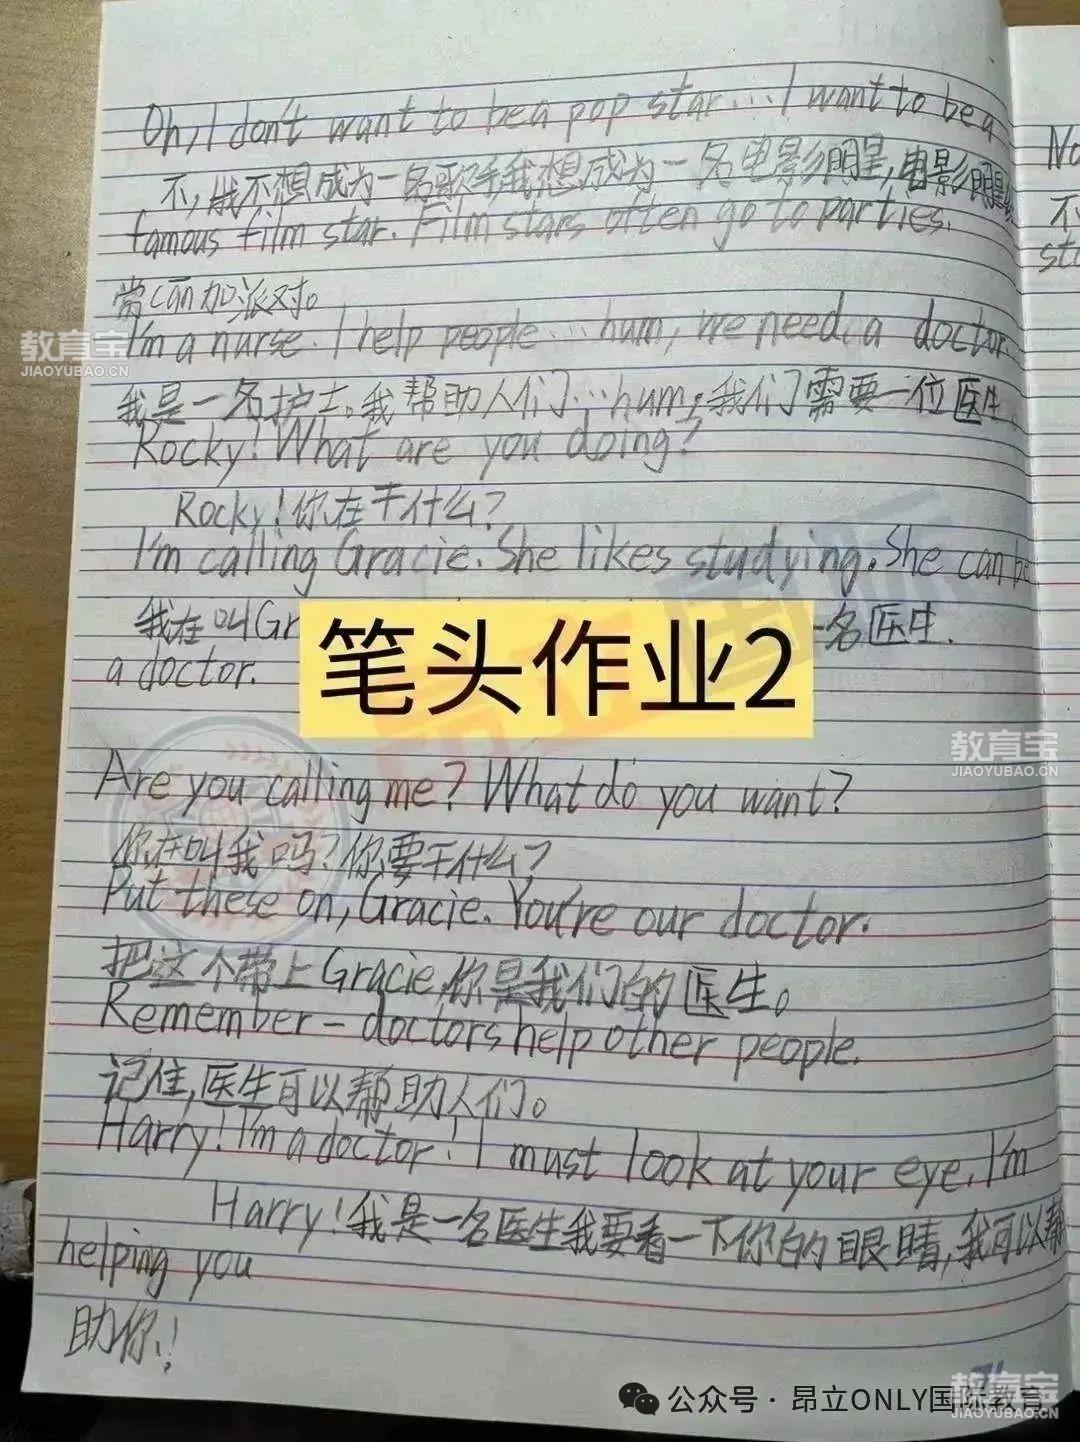 Oh, I don't want to be a pop star... I want to be a
不，我不想成为一名歌手我想成为一名电影明星，电影明星
famous film star. Film stars often go to parties.
常cān加派对。
I'm a nurse. I help people...hum, we need a doctor.
我是一名护士。我帮助人们...hum，我们需要一位医生
Rocky! What are you doing?
Rocky!你在干什么？
I'm calling Gracie. She likes studying. She can be
我在叫Gr
一名医生.
a doctor.
笔头作业2
Are you calling me? What do you want?
你在叫我吗？你要干什么？
Put these on, Gracie. You're our doctor.
把这个带上Gracie,你是我们的医生。
Remember – doctors help other people.
记住,医生可以帮助人们。
Harry! I'm a doctor! I must look at your eye. I'm
Harry!我是一名医生我要看一下你的眼睛,我可以帮
helping you
助你!
No
不
sta
教育宝
JIAOYUBAO.CN
教育宝
JIAOYUBAO.CN
公众号·昂立ONLY国际教育
教育宝
JIAOYUBAO.CN